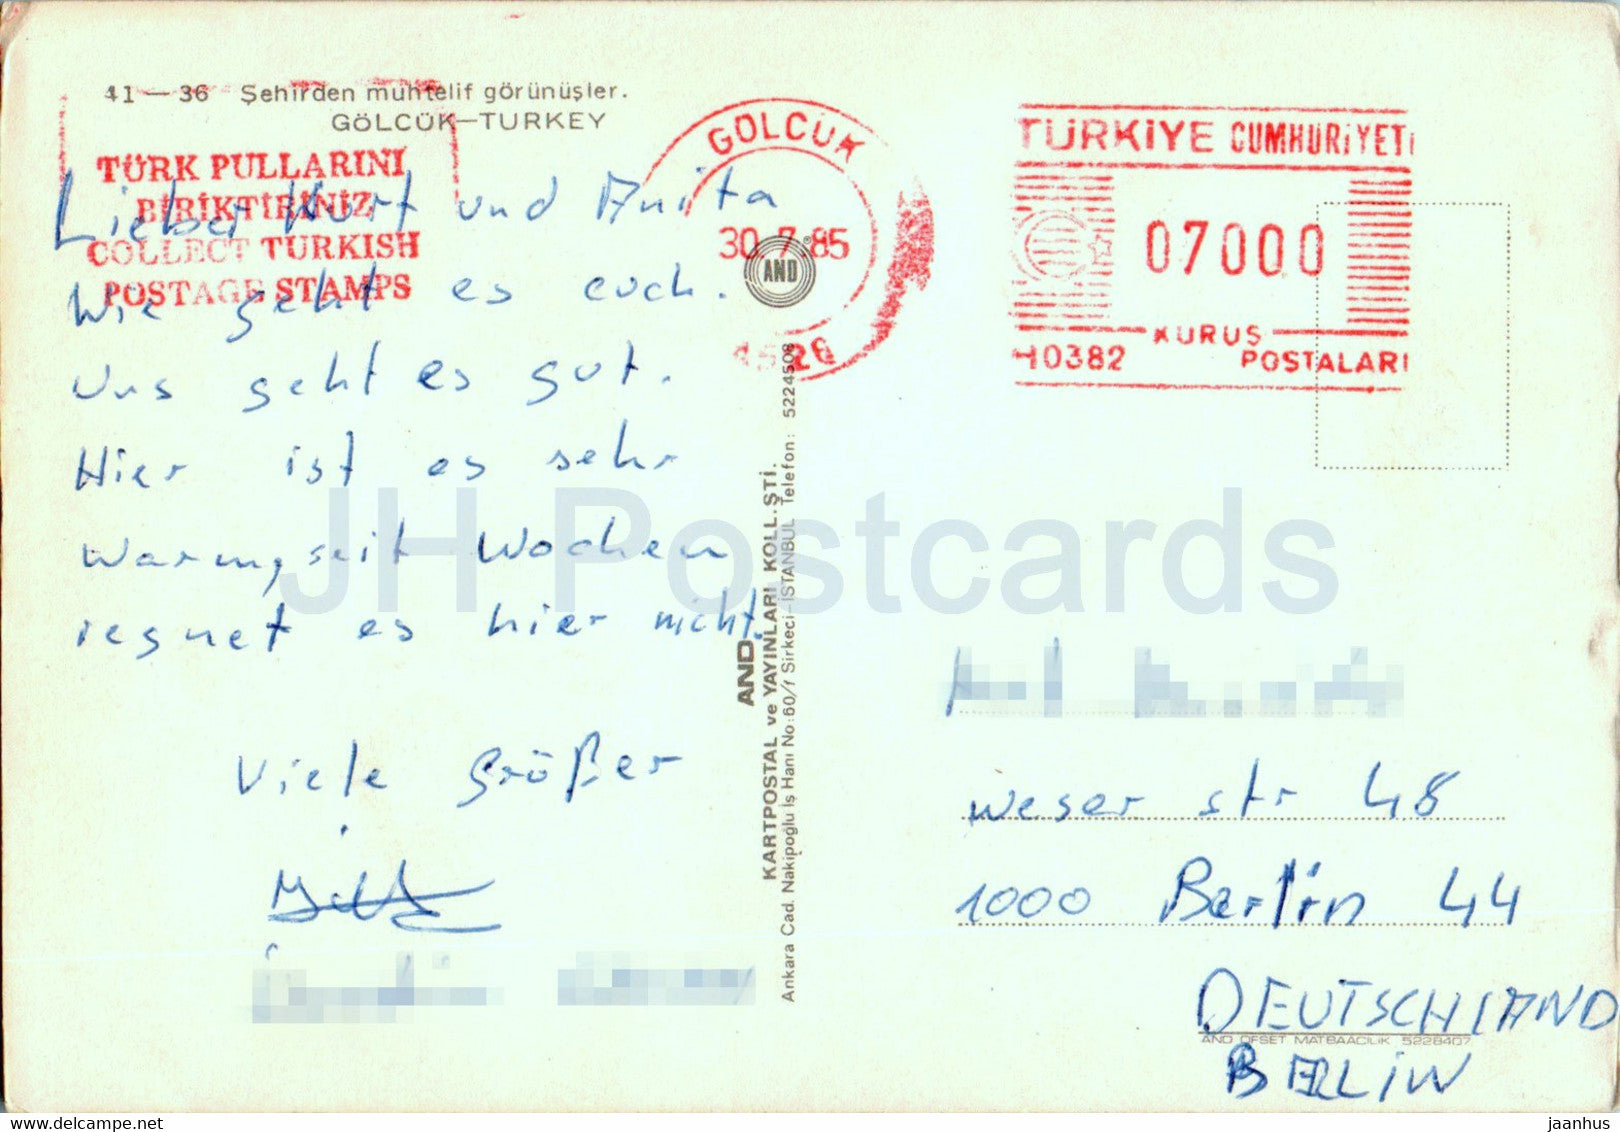 41—36 Şehirden muhtelif görünüşler.
GÖLCÜK—TURKEY
TÜRK PULLARINI
BİRİKTİRİNİZ
COLLECT TURKISH
POSTAGE STAMPS
Lieber Kurt und Anita
Wie geht es euch.
Uns geht es gut.
Hier ist es sehr
warm, seit Wochen
regnet es hier nicht.
Viele größer
GÖLCÜK
30.7.85
AND
TÜRKİYE CUMHURİYETİ
07000
KURUŞ
H0382 POSTALARI
AND
KARTPOSTAL ve YAYINLARI KOLL.ŞTİ.
Ankara Cad. Nakipoğlu İş Hanı No:60/f Sirkeci—İSTANBUL Telefon: 5224508
weser str 48
1000 Berlin 44
DEUTSCHLAND
AND OFSET MATBAACILIK 5228407
BERLiN
JH Postcards
www.delcampe.net
jaanhus